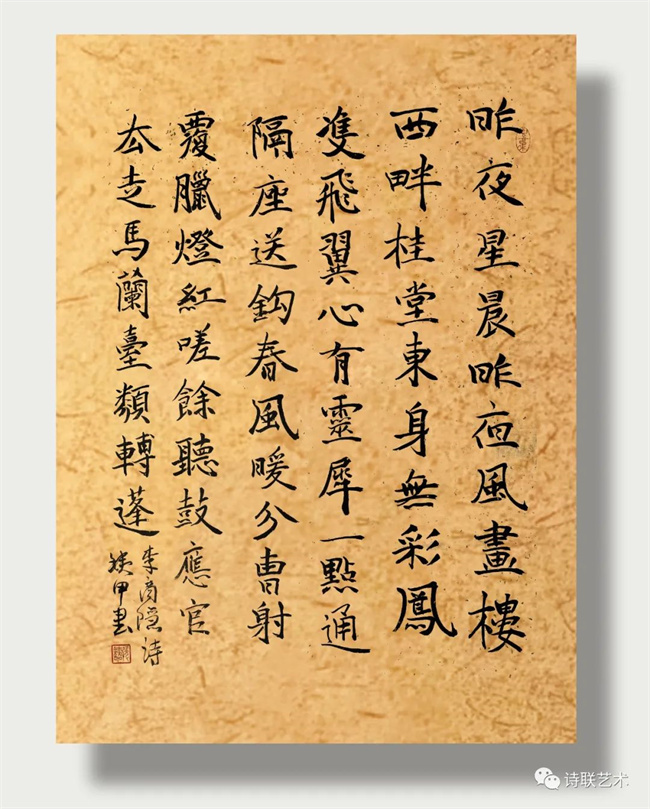 昨夜星晨昨夜風畫樓
西畔桂堂東身無彩鳳
隻飛翼心有靈犀一點通
隔座送鈎春風暖分曹射
覆臘燈紅嗟餘聽鼓應官
厺走馬蘭臺類轉蓬
李商隱詩
甲書
诗联艺术